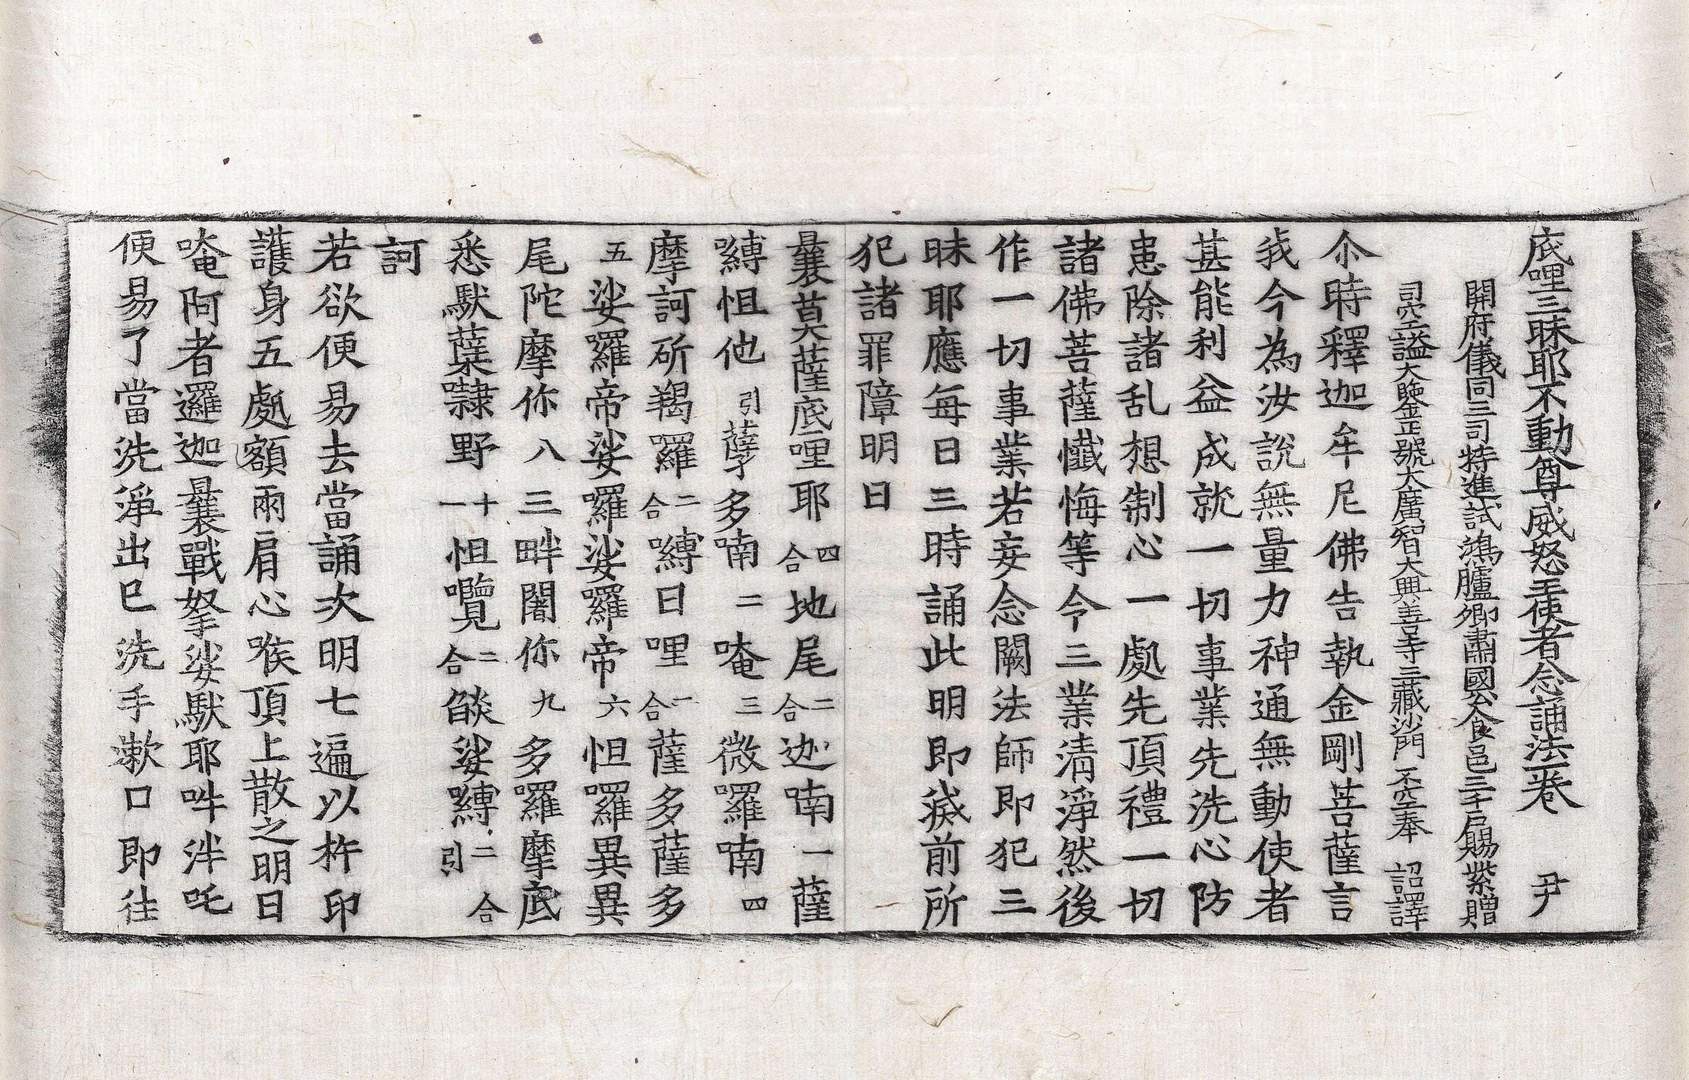 底哩三昧耶不動尊威怒王使者念誦法一卷 尹
開府儀同三司特進試鴻臚卿肅國公食邑三千戶賜紫贈
司空謚大鑒正號大廣智大興善寺三藏沙門不空奉 詔譯
尒時釋迦牟尼佛告執金剛菩薩言
我今為汝說無量力神通無動使者
甚能利益成就一切事業先洗心防
患除諸乱想制心一處先頂禮一切
諸佛菩薩懺悔等令三業清淨然後
作一切事業若妄念闕法師即犯三
昧耶應每日三時誦此明即滅前所
犯諸罪障明曰
曩莫薩底哩耶四合地尾二合迦喃一薩
嚩怛他引孽多喃二唵三微囉喃四
摩訶斫羯囉二合嚩日哩一合薩多薩多
五娑囉帝娑囉娑囉帝六怛囉異異
尾陀摩你八三畔闍你九多囉摩底
悉馱葉隸野十一怛囕二合燄娑嚩二合引
訶
若欲便易去當誦次明七遍以杵印
護身五處額兩肩心喉頂上散之明曰
唵阿者邏迦曩戰拏娑馱耶吽泮吒
便易了當洗淨出已洗手漱口即往